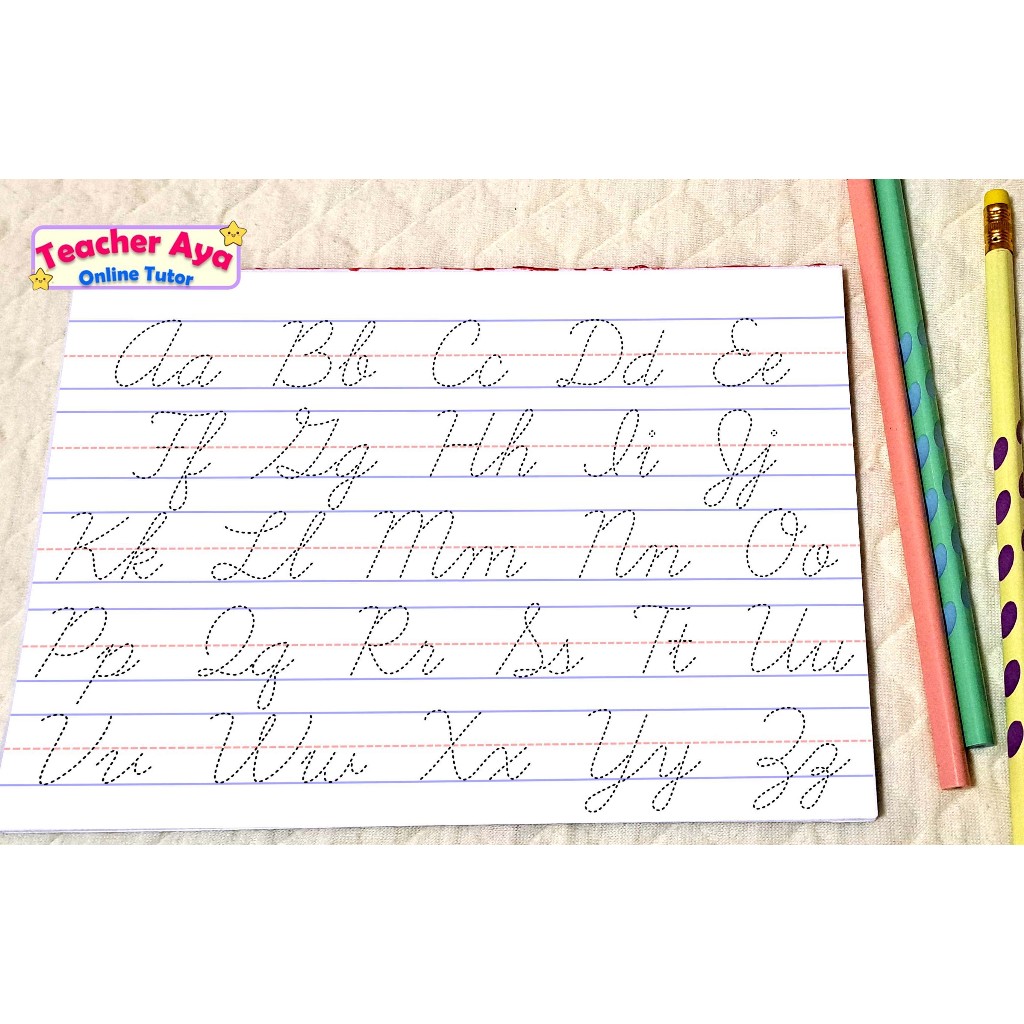 Teacher Aya
Online Tutor
Aa Bb Cc Dd Ee
Ff Gg Hh Ii Jj
Kk Ll Mm Nn Oo
Pp Qq Rr Ss Tt Uu
Vv Ww Xx Yy Zz